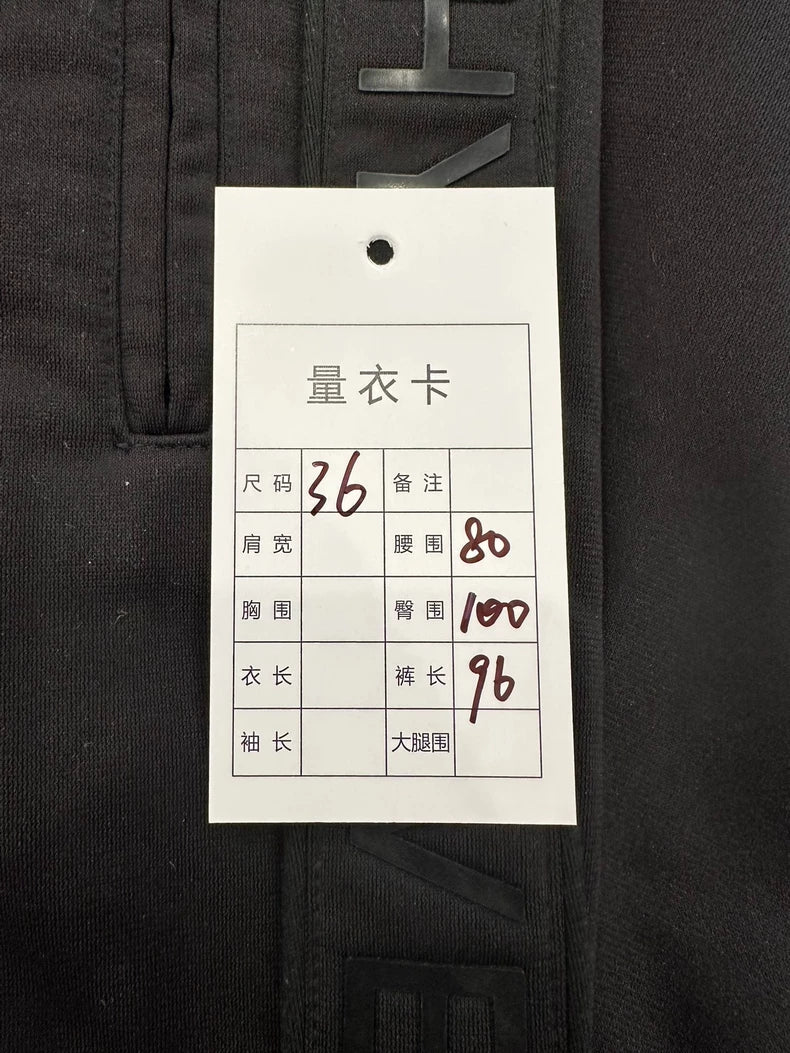 量衣卡
尺码 36 备注
肩宽 腰围 80
胸围 臀围 100
衣长 裤长 96
袖长 大腿围